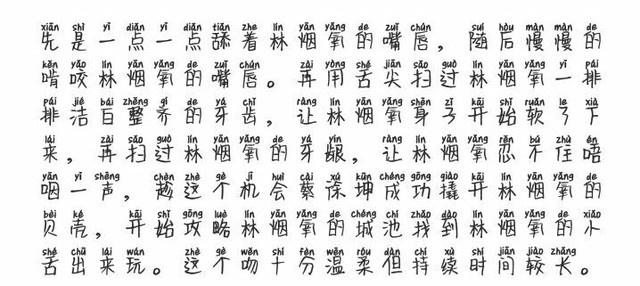 xiān shì yī diǎn yī diǎn tiǎn zhe lín yān yǎng de zuǐ chún suí hòu màn màn de
先是一点一点舔着林烟氧的嘴唇，随后慢慢的
kěn yǎo lín yān yǎng de zuǐ chún zài yòng shé jiān sǎo guò lín yān yǎng yī pái
啃咬林烟氧的嘴唇。再用舌尖扫过林烟氧一排
pái jié bái zhěng qí de yá chǐ ràng lín yān yǎng shēn zǐ kāi shǐ ruǎn le xià
排洁白整齐的牙齿，让林烟氧身子开始软了下
lái zài sǎo guò lín yān yǎng de yá yín ràng lín yān yǎng rěn bú zhù én
来，再扫过林烟氧的牙龈，让林烟氧忍不住唔
yàn yī shēng chèn zhè gè jī huì cài xú kūn chéng gōng qiào kāi lín yān yǎng de
咽一声，趁这个机会蔡徐坤成功撬开林烟氧的
bèi ké kāi shǐ gōng lüè lín yān yǎng de chéng chí zhǎo dào lín yān yǎng de xiǎo
贝壳，开始攻略林烟氧的城池找到林烟氧的小
shé chū lái wán zhè gè wěn shí fēn wēn róu dàn chí xù shí jiān jiào zhǎng
舌出来玩。这个吻十分温柔但持续时间较长。